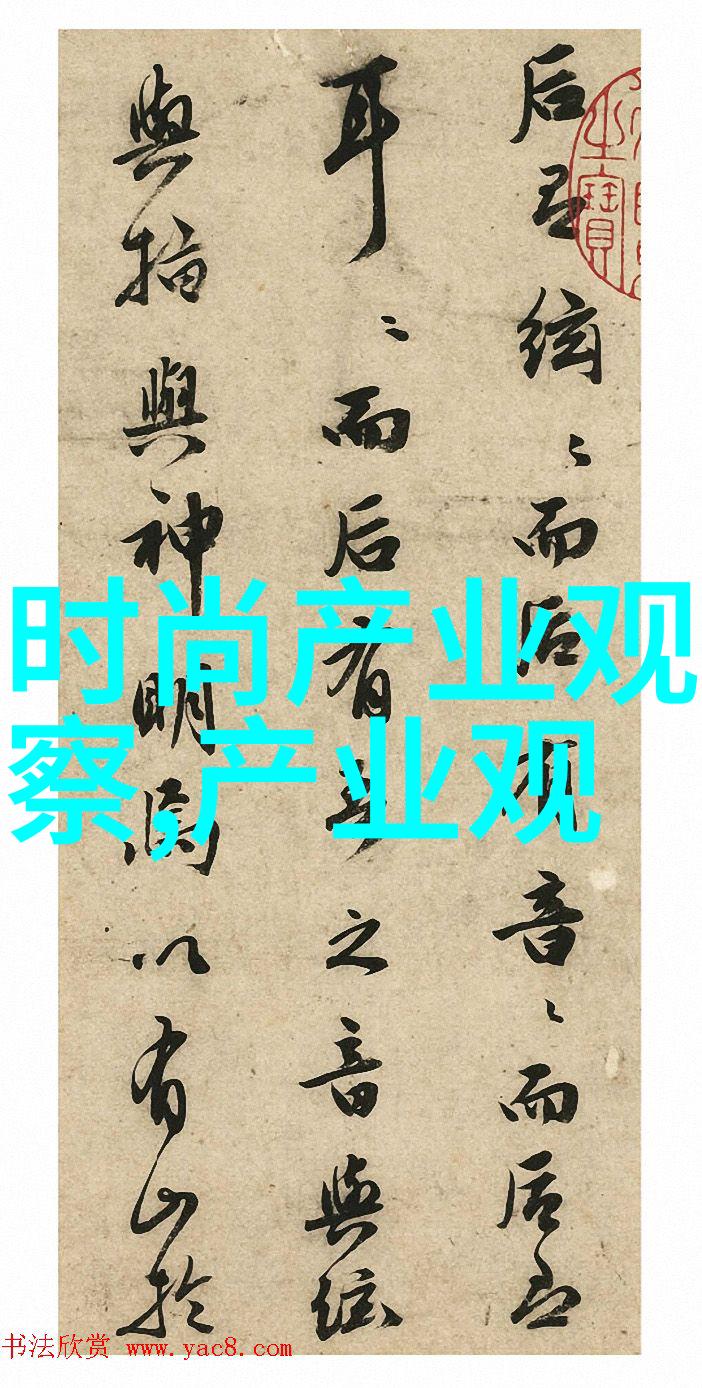 后絃〻而后有音〻而后
耳〻而后有之音與絃
與指與神明以有山於
之寶
时尚产业观
察,产业观
书法欣赏 www.yac8.com